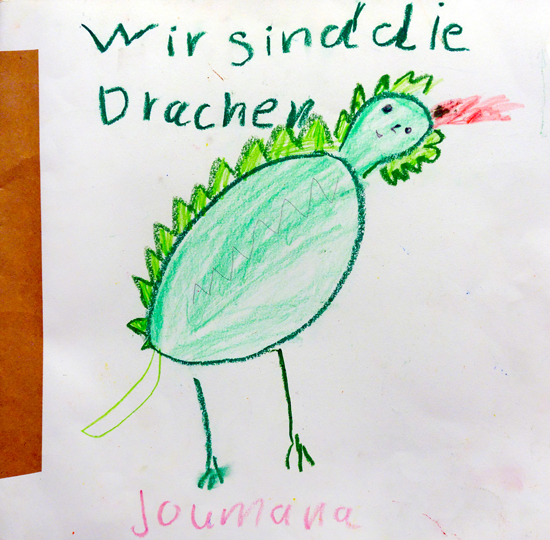 Wir sind die
Drachen
Joumana